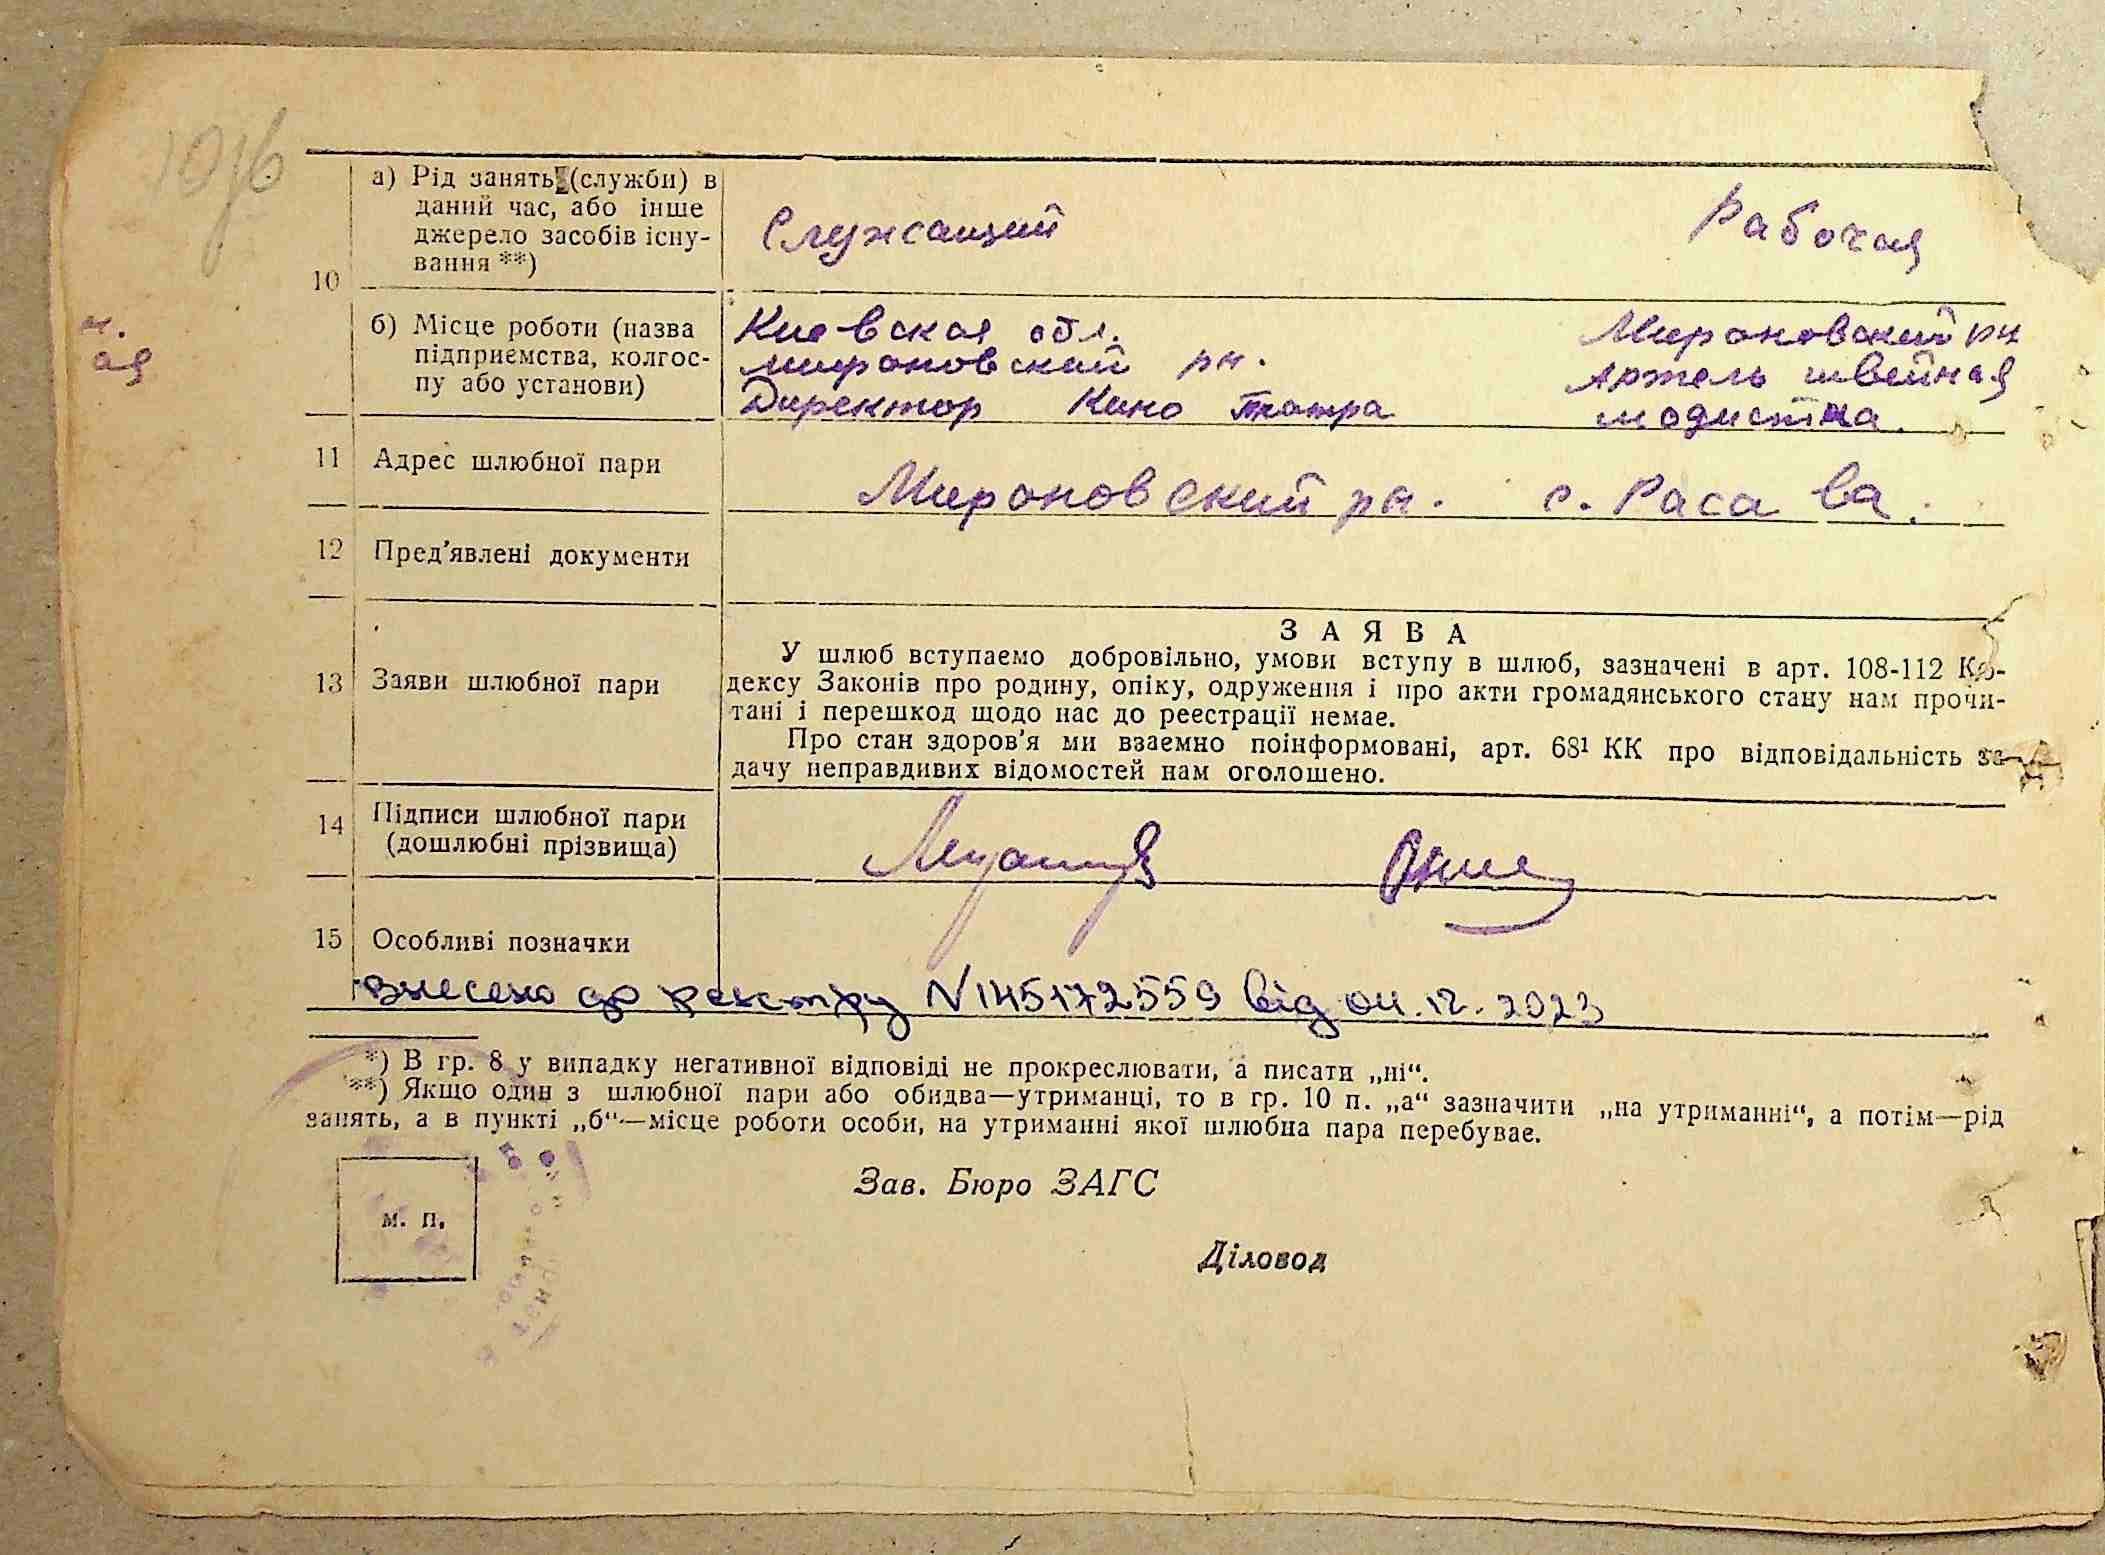 10
а) Рід занять (служби) в
даний час, або інше
джерело засобів існу-
вання **)
Служащий
Рабочая
б) Місце роботи (назва
підприємства, колгос-
пу або установи)
Киевская обл.
мироновский рн.
Директор Кино театра
Мироновский рн
Артель швейная
модистка.
11 Адрес шлюбної пари
Мироновский рн. с. Расава.
12 Пред'явлені документи
13 Заяви шлюбної пари
ЗАЯВА
У шлюб вступаємо добровільно, умови вступу в шлюб, зазначені в арт. 108-112 Ко-
дексу Законів про родину, опіку, одруження і про акти громадянського стану нам прочи-
тані і перешкод щодо нас до реєстрації немає.
Про стан здоров'я ми взаємно поінформовані, арт. 68¹ КК про відповідальність за
дачу неправдивих відомостей нам оголошено.
14 Підписи шлюбної пари
(дошлюбні прізвища)
15 Особливі позначки
Внесено до реєстру N145172559 від 04.12.2023
*) В гр. 8 у випадку негативної відповіді не прокреслювати, а писати „ні“.
**) Якщо один з шлюбної пари або обидва—утриманці, то в гр. 10 п. „а“ зазначити „на утриманні“, а потім—рід
занять, а в пункті „б“—місце роботи особи, на утриманні якої шлюбна пара перебуває.
м. п.
Зав. Бюро ЗАГС
Діловод